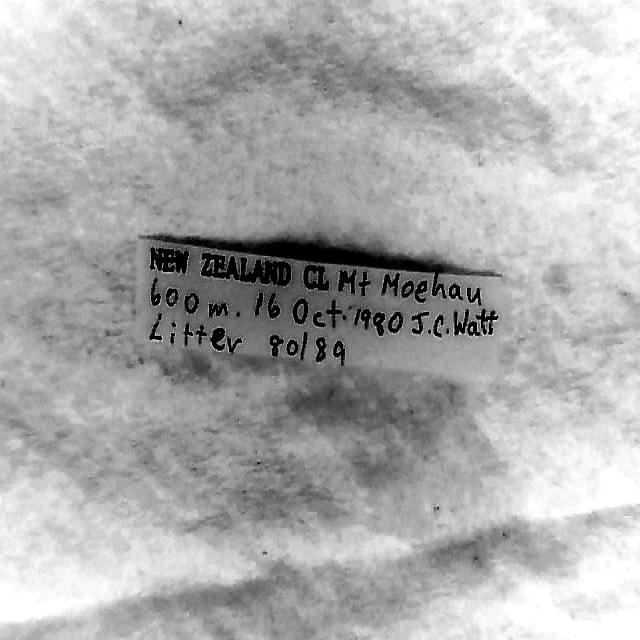 NEW ZEALAND CL Mt Moehau
600 m. 16 Oct. 1980 J.C. Watt
Litter 80/89